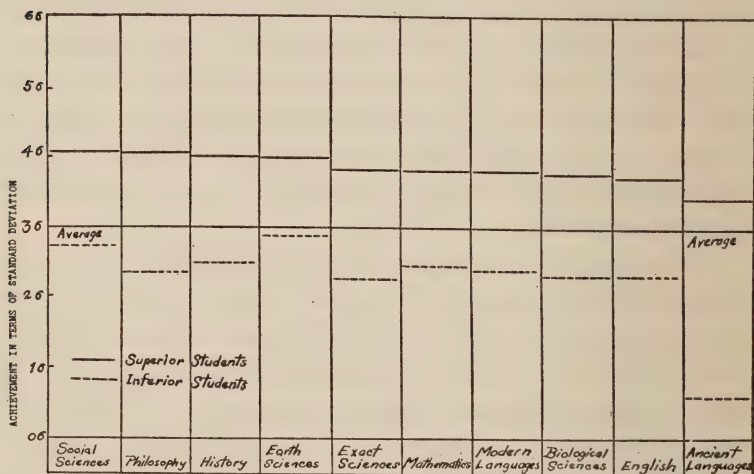 ACHIEVEMENT IN TERMS OF STANDARD DEVIATION
6σ
5σ
4σ
3σ
Average
Average
2σ
1σ
Superior Students
Inferior Students
0σ
Social Sciences
Philosophy
History
Earth Sciences
Exact Sciences
Mathematics
Modern Languages
Biological Sciences
English
Ancient Languages